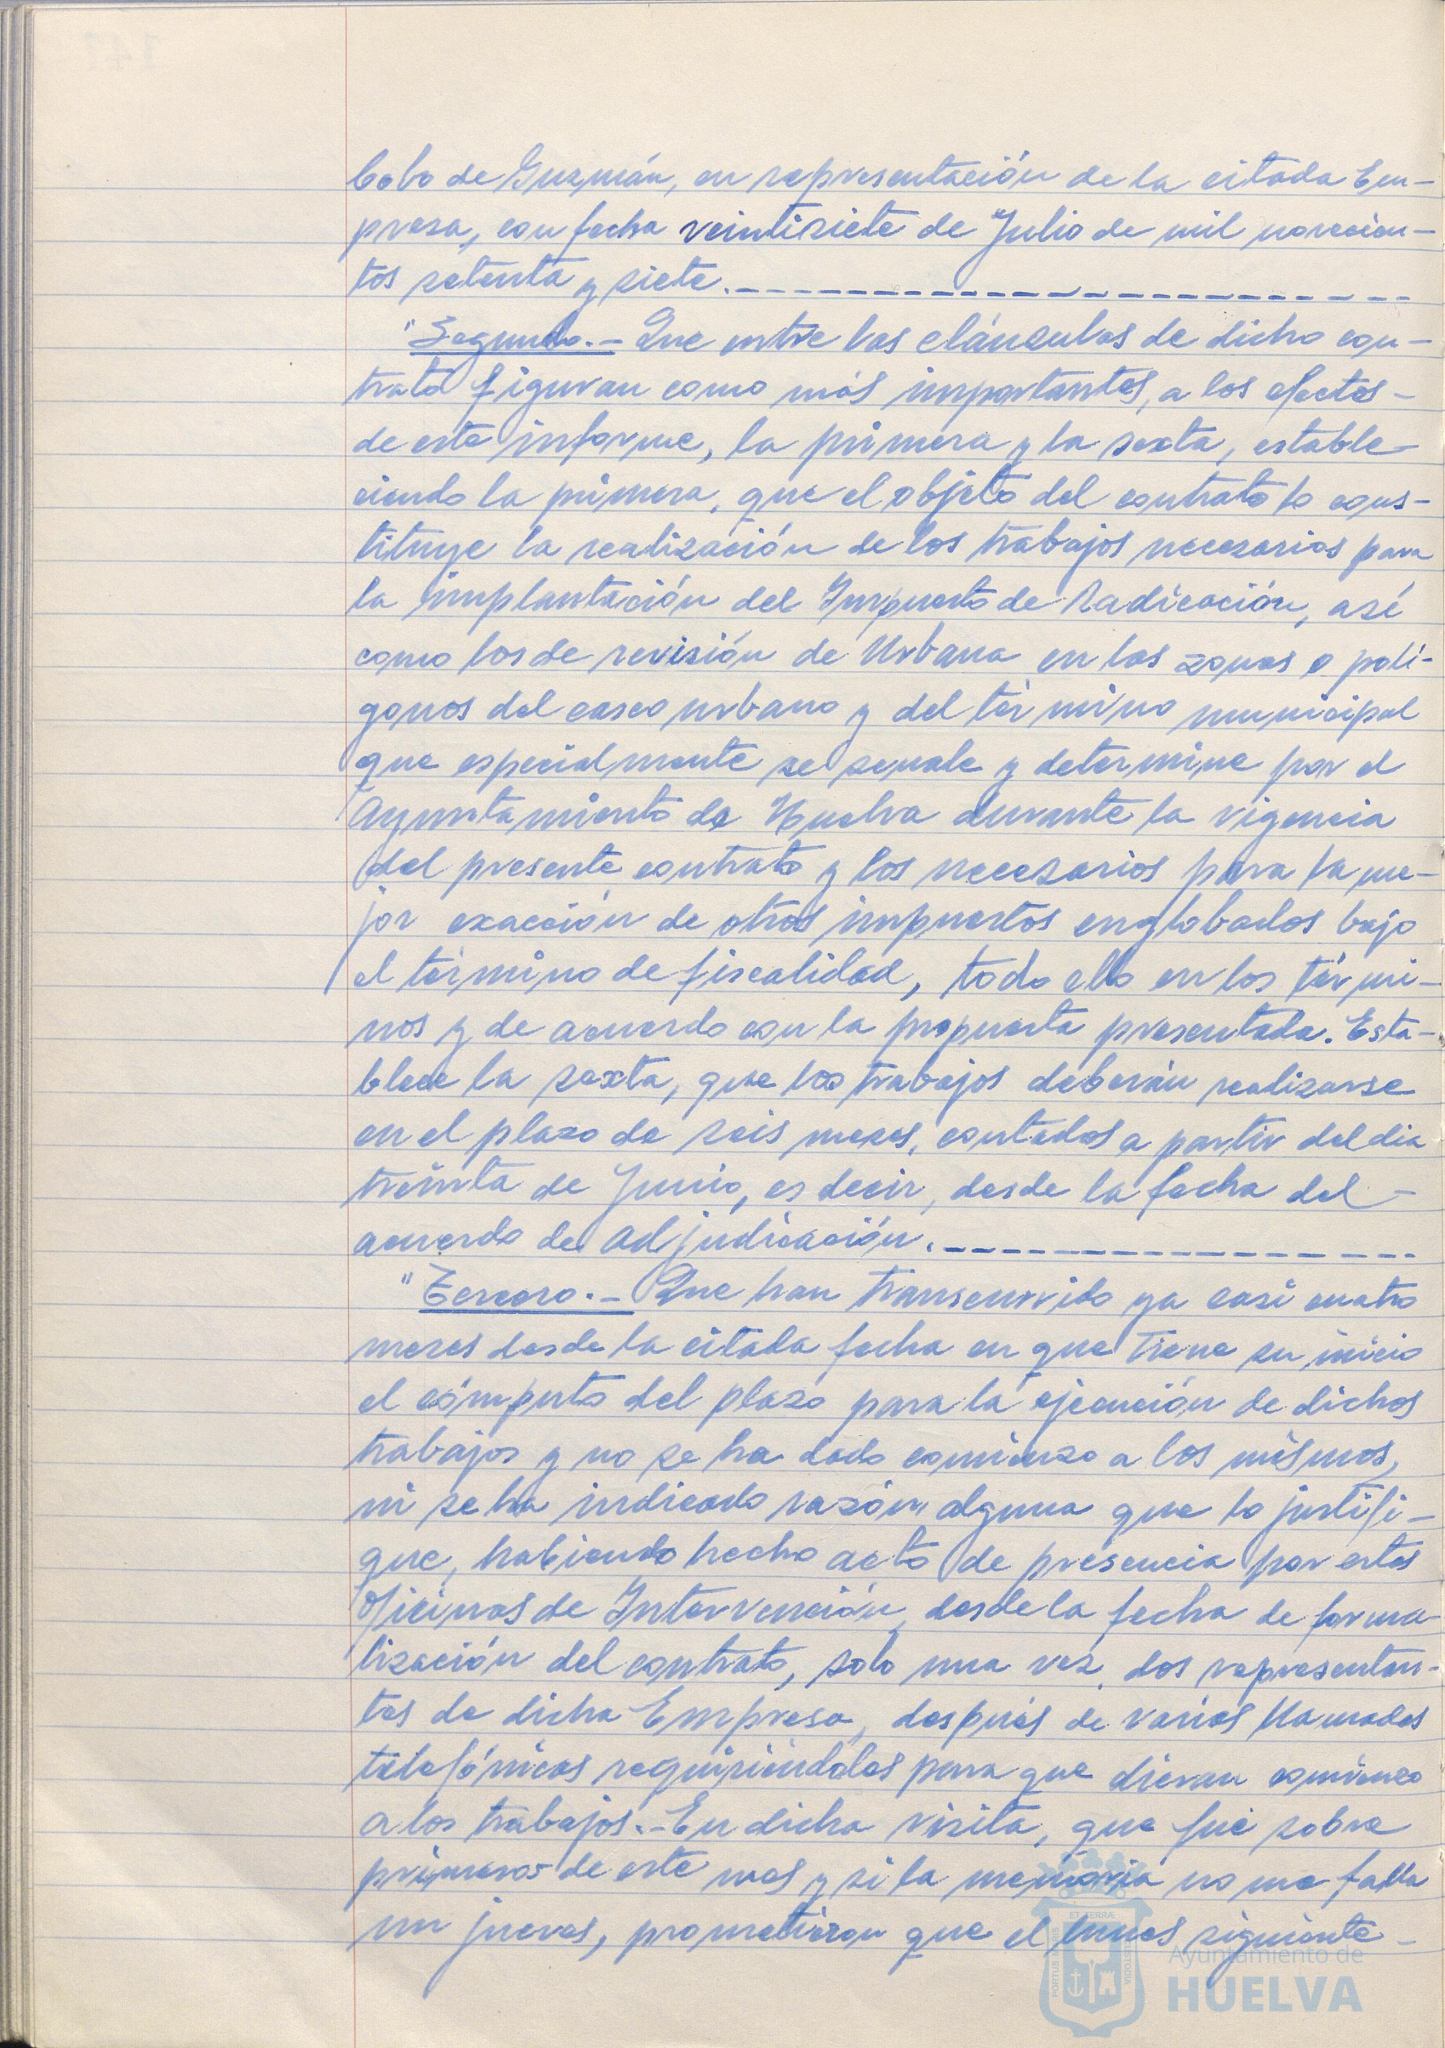 Cobo de Guzmán, en representación de la citada Em-
presa, con fecha veintisiete de Julio de mil novecien-
tos setenta y siete.
"Segundo.- Que entre las cláusulas de dicho con-
trato figuran como más importantes, a los efectos -
de este informe, la primera y la sexta, estable-
ciendo la primera, que el objeto del contrato lo cons-
tituye la realización de los trabajos necesarios para
la implantación del Impuesto de Radicación, así
como los de revisión de Urbana en las zonas o polí-
gonos del casco urbano y del término municipal
que especialmente se señale y determine por el
Ayuntamiento de Huelva durante la vigencia
del presente contrato y los necesarios para la me-
jor exacción de otros impuestos englobados bajo
el término de fiscalidad, todo ello en los térmi-
nos y de acuerdo con la propuesta presentada. Esta-
blece la sexta, que los trabajos deberán realizarse
en el plazo de seis meses, contados a partir del dia
treinta de Junio, es decir, desde la fecha del -
acuerdo de adjudicación.
"Tercero.- Que han transcurrido ya casi cuatro
meses desde la citada fecha en que tiene su inicio
el cómputo del plazo para la ejecución de dichos
trabajos y no se ha dado comienzo a los mismos,
ni se ha indicado razón alguna que lo justifi-
que, habiendo hecho acto de presencia por estas
Oficinas de Intervención, desde la fecha de forma-
lización del contrato, solo una vez, dos representan-
tes de dicha Empresa, después de varias llamadas
telefónicas requiriéndoles para que dieran comienzo
a los trabajos.- En dicha visita, que fué sobre
primeros de este mes y si la memoria no me falla
un jueves, prometieron que el lunes siguiente -
Ayuntamiento de
HUELVA